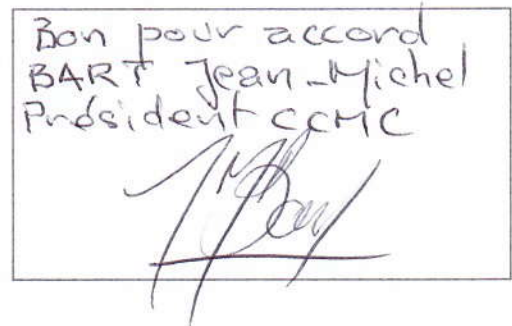 Bon pour accord
BART Jean-Michel
Président CCMC